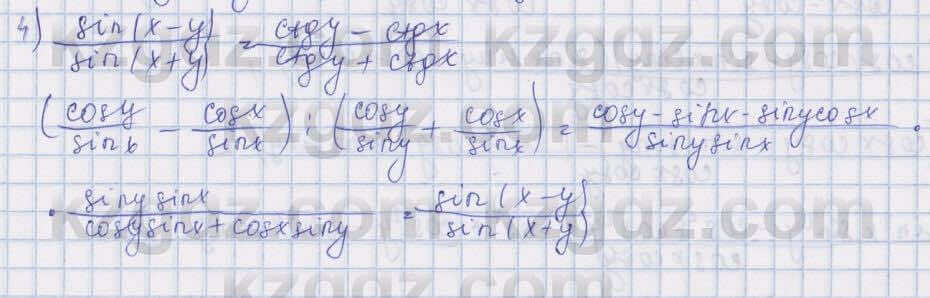 4) sin(x-y)/sin(x+y) = ctgy - ctgx/ctgy + ctgx
(cosy/sinx - cosx/sinx) : (cosy/siny + cosx/sinx) = cosy - sinx - sinycosx/sinysinx ·
· sinysinx/cosysinx + cosxsiny = sin(x-y)/sin(x+y)
kzgdz.com